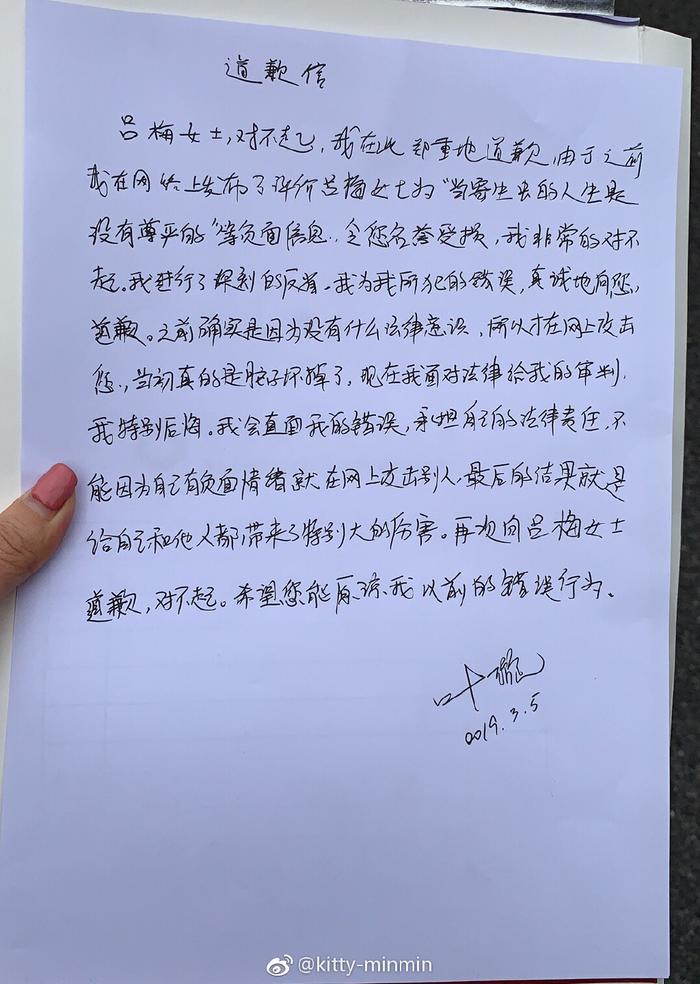 道歉信
吕梅女士,对不起,我在此郑重地道歉,由于之前
我在网络上发布了评价吕梅女士为"当寄生虫的人生是
没有尊严的"等负面信息,令您名誉受损,我非常的对不
起。我进行了深刻的反省。我为我所犯的错误,真诚地向您,
道歉。之前确实是因为没有什么法律意识,所以才在网上攻击
您,当初真的是脑子坏掉了,现在我面对法律给我的审判,
我特别后悔。我会直面我的错误,承担自己的法律责任,不
能因为自己有负面情绪就在网上攻击别人,最后的结果就是
给自己和他人都带来了特别大的伤害。再次向吕梅女士
道歉,对不起。希望您能原谅我以前的错误行为。
叶璇
2019.3.5
@kitty-minmin